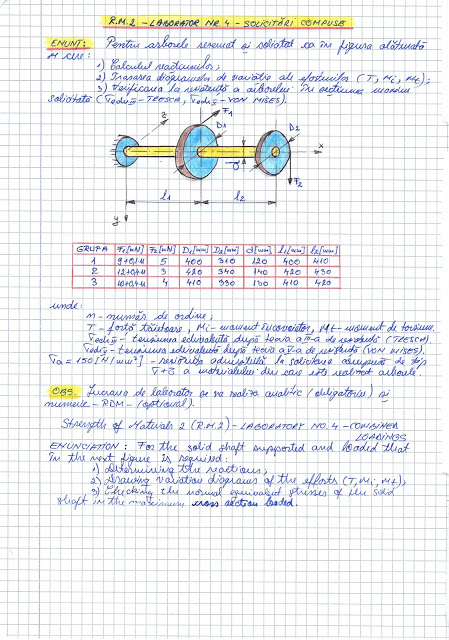 R.M.2 - LABORATOR NR.4 - SOLICITĂRI COMPUSE
ENUNȚ: Pentru arborele rezemat și solicitat ca în figura alăturată
se cere:
1) Calculul reacțiunilor;
2) Trasarea diagramelor de variație ale eforturilor (T, Mi, Mt);
3) Verificarea la rezistență a arborelui în secțiunea maxim
solicitată (σechIII - TRESCA, σechV - VON MISES).
F1
D1
D2
z
x
d
F2
l1
l2
y
GRUPA F1[kN] F2[kN] D1[mm] D2[mm] d[mm] l1[mm] l2[mm]
1 9+0,1·n 5 400 310 120 400 410
2 12+0,4·n 3 420 340 140 420 430
3 10+0,4·n 4 410 330 130 410 420
unde:
n - număr de ordine;
T - forță tăietoare, Mi - moment încovoietor, Mt - moment de torsiune
σechIII - tensiunea echivalentă după teoria a III-a de rezistență (TRESCA)
σechV - tensiunea echivalentă după teoria a V-a de rezistență (VON MISES).
σa = 150 [N/mm²] - rezistența admisibilă la solicitarea compusă de tip
σ+τ a materialului din care este realizat arborele.
OBS. Lucrarea de laborator se va realiza analitic (obligatoriu) și
numeric - RDM - (opțional).
Strength of Materials 2 (R.M.2) - LABORATORY NO.4 - COMBINED
LOADINGS
ENUNCIATION: For the solid shaft supported and loaded that
in the next figure is required:
1) Determining the reactions;
2) Drawing variation diagrams of the efforts (T, Mi, Mt);
3) Checking the normal equivalent stresses of the solid
shaft in the maximum cross section loaded.